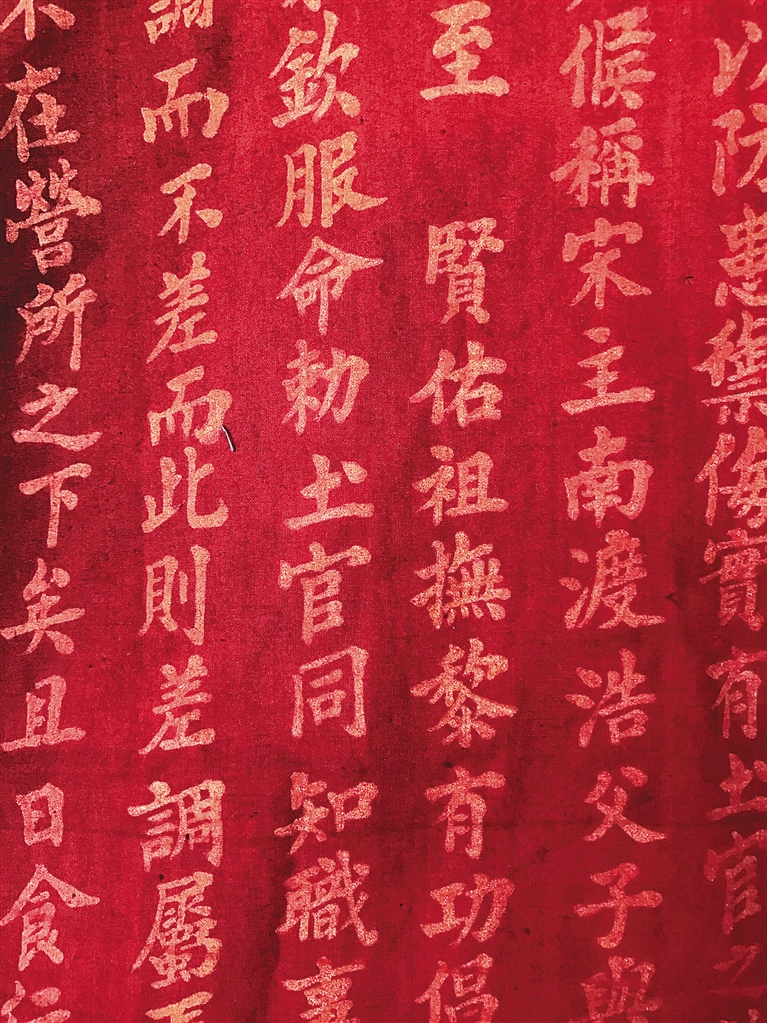 以防患禦侮實有土官之
候稱宋主南渡浩父子與
至 賢佑祖撫黎有功倡
欽服命勅土官同知職事
調而不差而此則差調屬
不在營所之下矣且日食